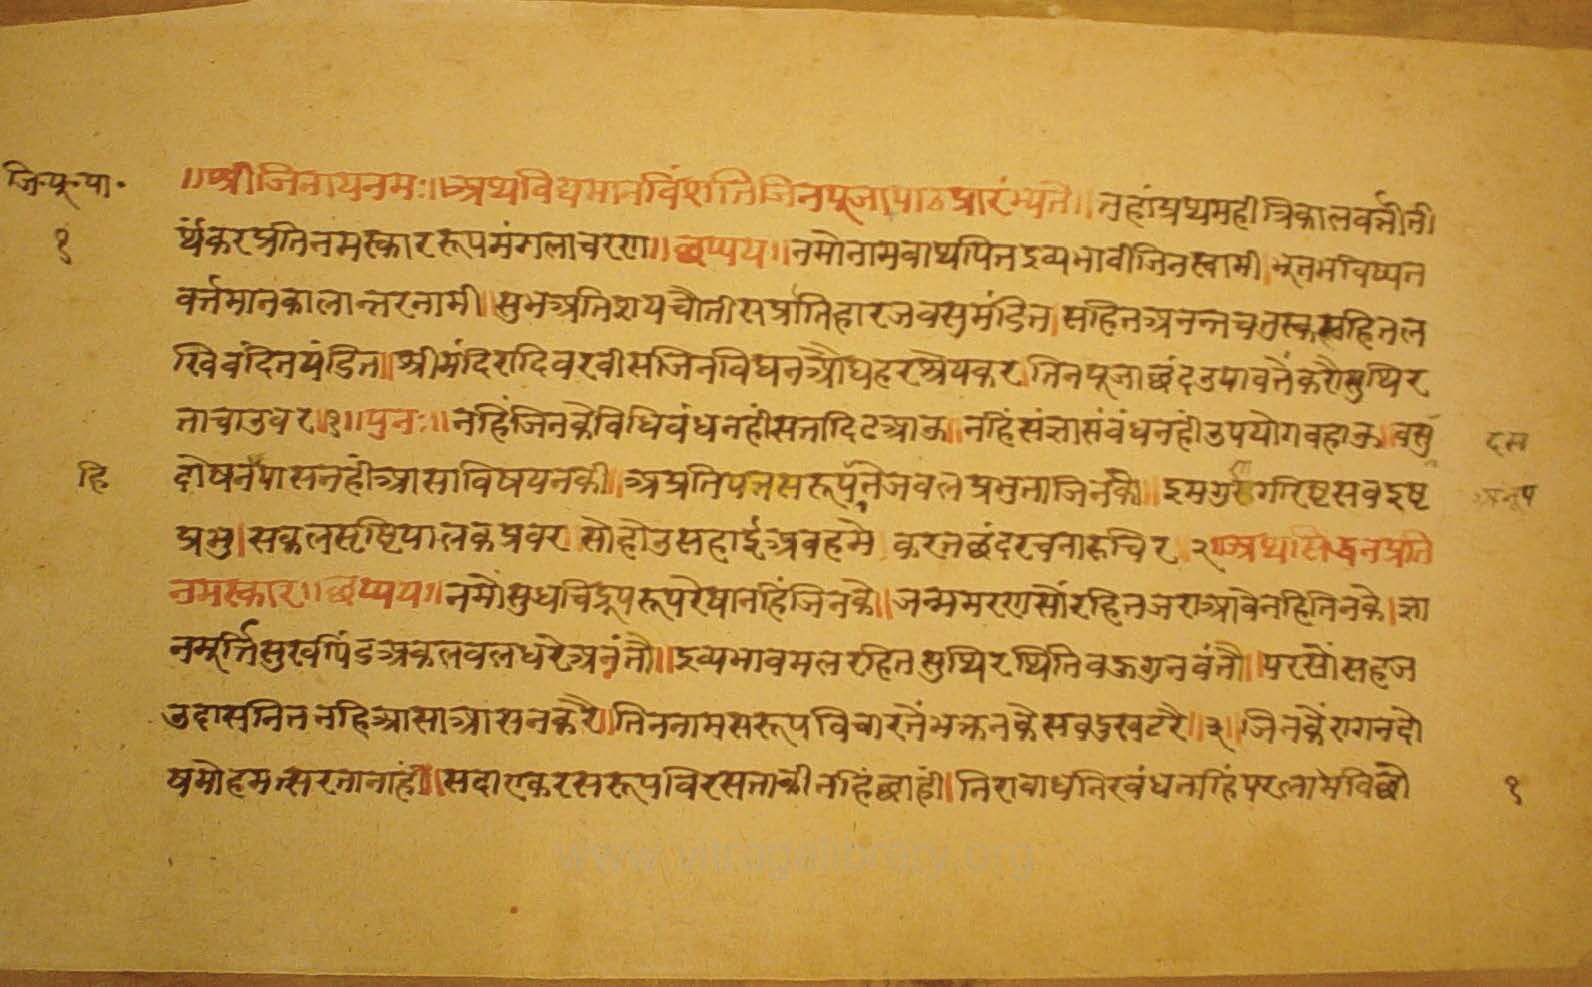 जि॰पू॰पा॰
॥श्रीजिनायनमः॥अथविद्यमानविंशतिजिनपूजापाठप्रारंभ्यते॥तहांप्रथमहीत्रिकालवर्त्तीती
१
र्थंकरप्रतिनमस्काररूपमंगलाचरण॥छप्पय॥नमोनामवाथपितद्रव्यभावीजिनस्वामी।भूतभविष्यत
वर्त्तमानकालान्तरनामी॥सुभअतिशयचौतीसप्रातिहारजवसुमंडित।सहितअनन्तचतुस्कसहितल
खिवंदितपंडित॥श्रीमंदिरादिवरवीसजिनविघनऔघहरश्रेयकर।तिनपूजाछंदउपावतैंकरौसुथिर
ताचाउधर॥१॥पुनः॥नहिंजिनकैविधिवंधनहींसत्तादिटआऊ॥नहिंसंज्ञासंवंधनहींउपयोगवहाऊ।वसु
दस
हि
दोषनपासनहींआसाविषयनकी॥अप्रतिपत्तसरूपनैजवलप्रभुताजिनकी॥इमगरिष्टसवइष्ट
प्रभु।सकलसृष्टिपालकप्रवर।सोहोउसहाईअवहमे।करतछंदरचनारुचिर।२।अथसिद्धनप्रति
नमस्कार॥छप्पय॥नमौसुधचिद्रूपरूपरेषानहिंजिनकै॥जन्ममरणसौंरहितजराआवेनहितिनके।ज्ञा
नमूर्त्तिसुखपिंडअकलवलधरेअनंतौ॥द्रव्यभावमलरहितसुथिरथितिवऊगुनवंतौ॥परसोंसहज
उदासनितनहिआसाआसनकरै।तिननामसरूपविचारतेंभक्तनकेसवदुखटरै॥३॥जिनकैंरागनदो
षमोहमत्सरतानाहीं॥सदाएकरसरूपविरसताकीनहिंछाहीं।निरावाधनिरवंधनहिंपरनामेविछौ
१